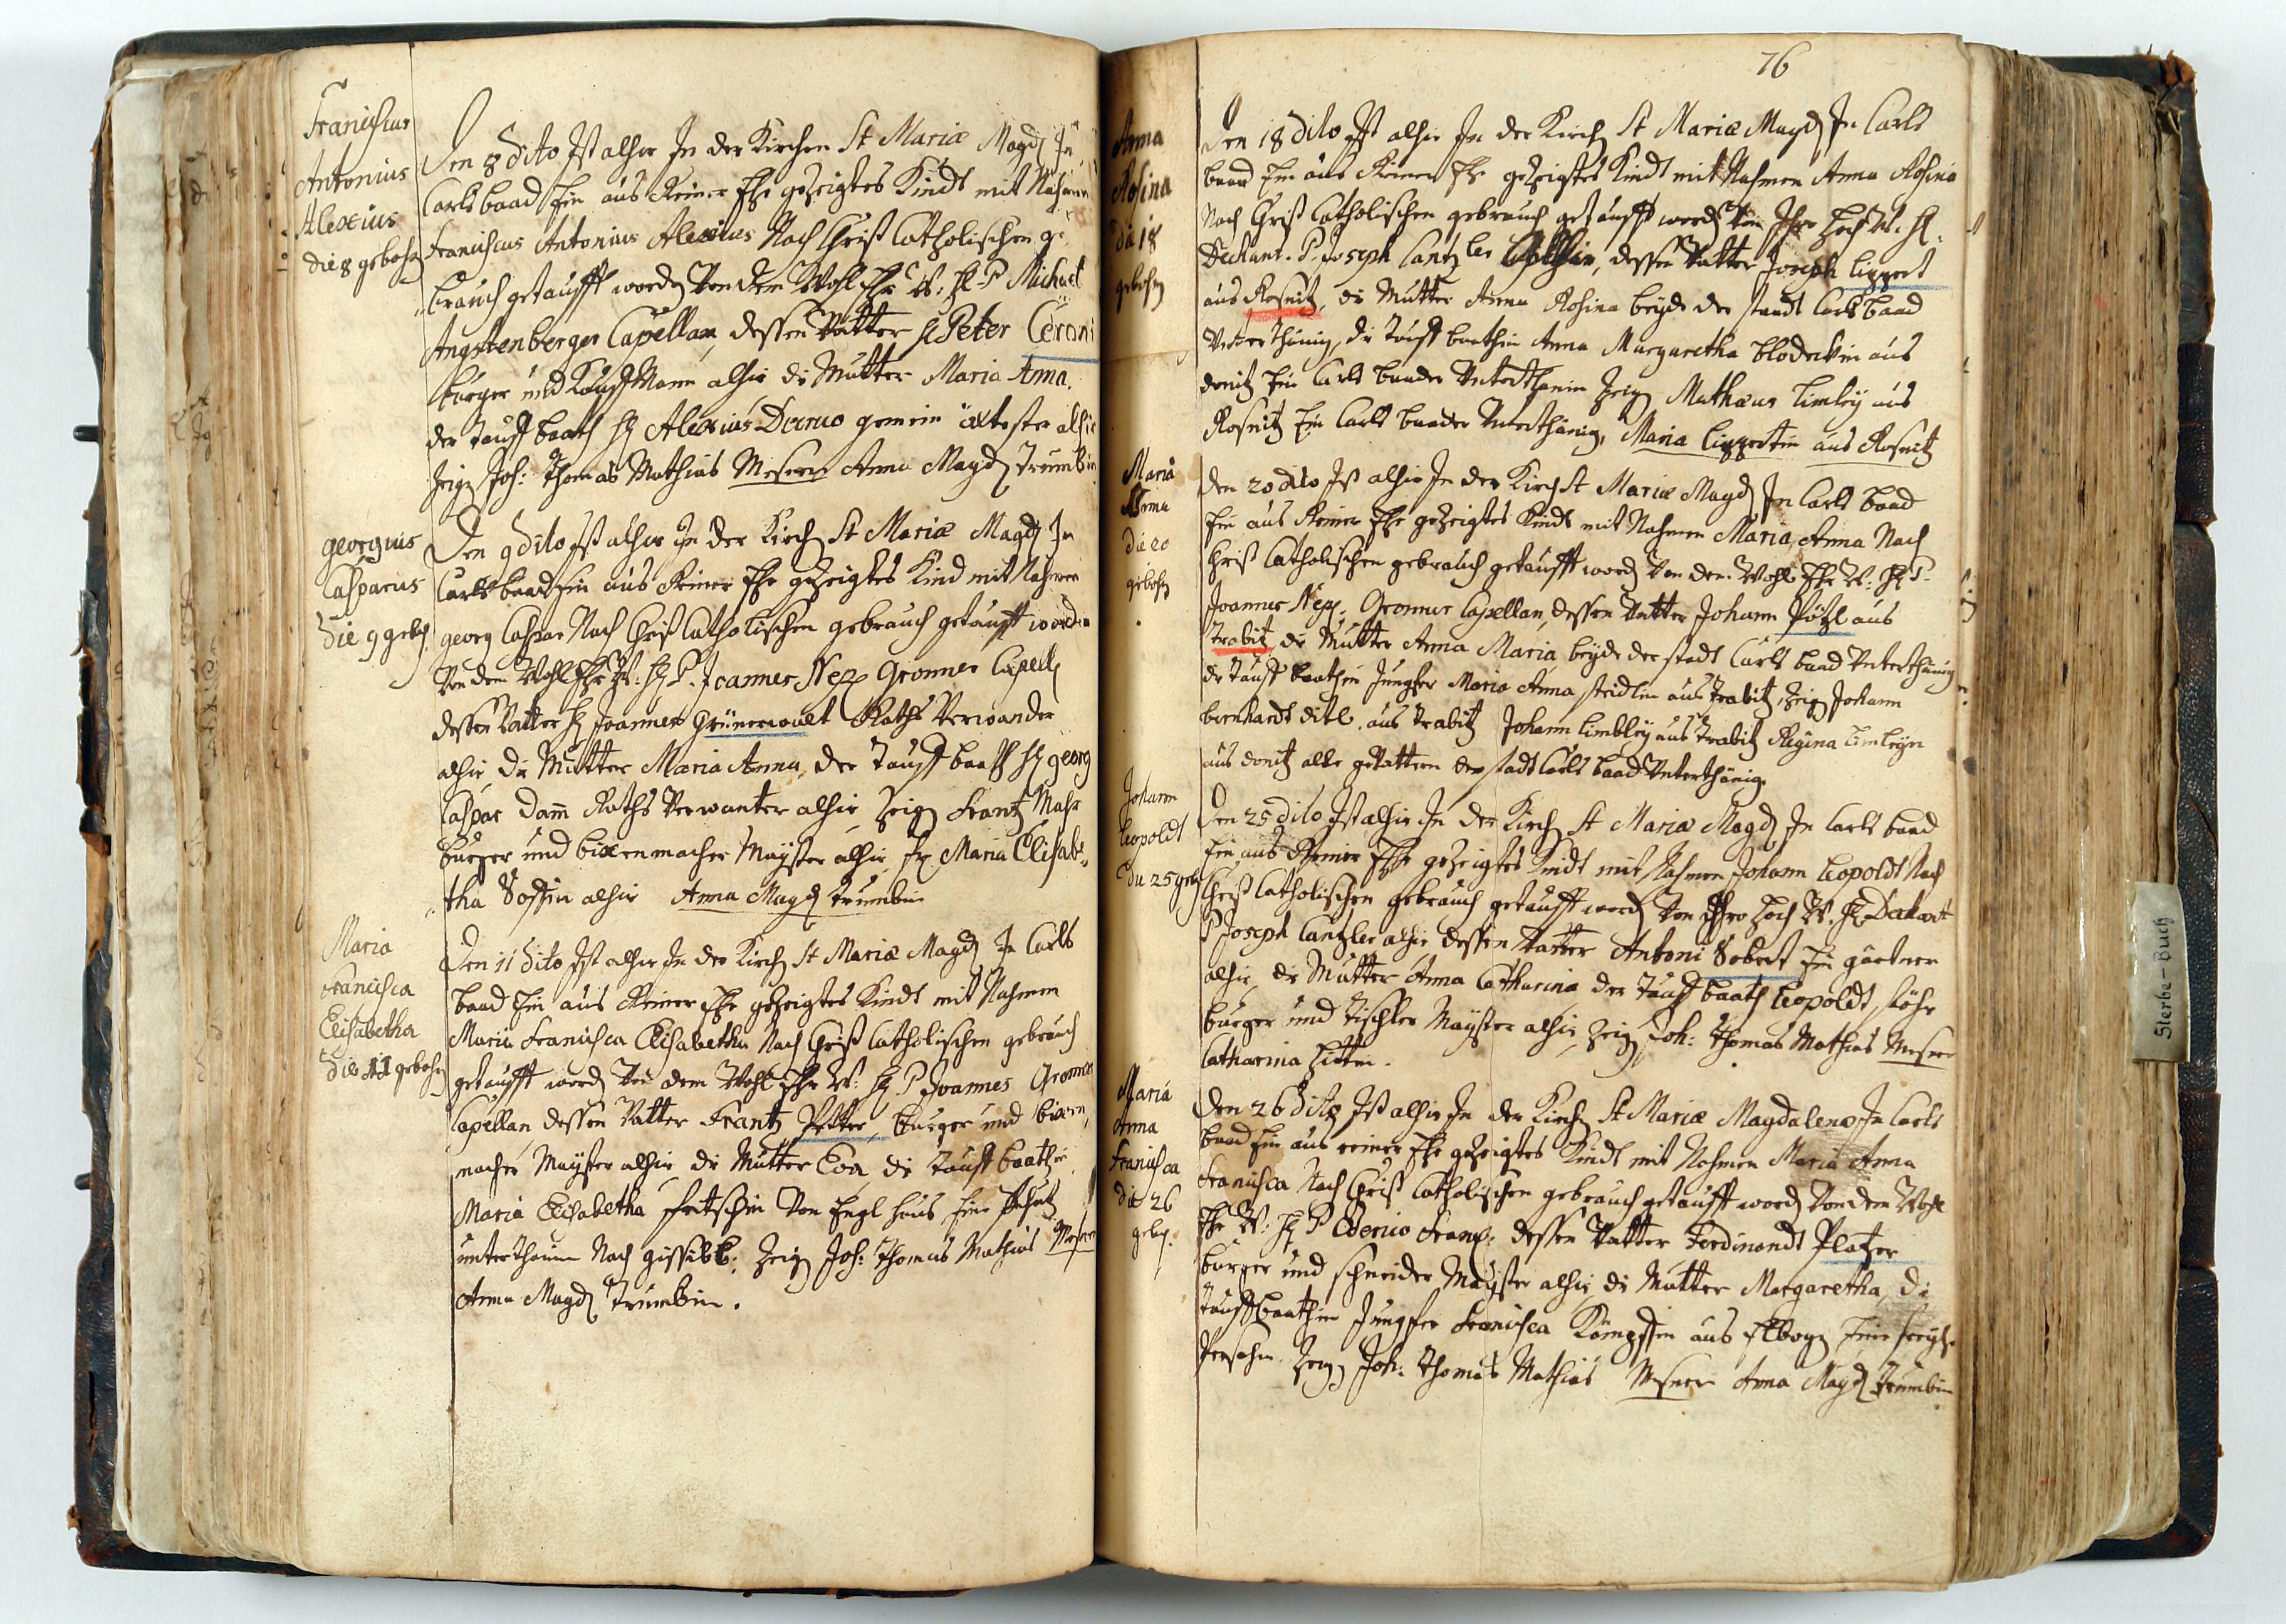 Franciscus
Antonius
Alexius
die 8 gebohrn
Den 8 dito Ist alhir In der Kirchen St Mariæ Magd In
Carlsbaad Ein aus Reiner Ehe gezeigtes Kindt mit Nahmen
Franciscus Antonius Alexius Nach Christ Catholischen ge-
brauch getaufft worden Von dem Wohl Ehr W: H P Michael
Angstenberger Capellan, dessen Vatter H Peter Ceroni
burger und Kauff Mann alhir die Mutter Maria Anna.
der tauff baath H Alexius Deruo gemein ältester alhir
Zeigen Joh: Thomas Mathias Mesner Anna Magd Trumbin
Georgius
Casparus
die 9 geboh.
Den 9 dito Ist alhir In der Kirch St Mariæ Magd In
Carlsbaad Ein aus Reiner Ehe gezeigtes Kind mit Nahmen
georg Caspar Nach Christ Catholischen gebrauch getaufft worden
Von dem Wohl Ehr W: H P. Joannes Nep Gronner Capell
dessen Vatter H Joannes Grünerwalt Raths Verwander
alhir die Mutter Maria Anna, der tauff baath H georg
Caspar Dam Raths Verwanter alhir Zeigen Frantz Mahr
burger und bixenmacher Mayster alhir, Fr Maria Elisabe-
tha alhir Anna Magd Trumbin
Maria
Francisca
Elisabetha
die 11 gebohrn
Den 11 dito Ist alhir In der Kirch St Mariæ Magd In Carls
baad Ein aus Reiner Ehe gezeigtes Kindt mit Nahmen
Maria Francisca Elisabetha Nach Christ Catholischen gebrauch
getaufft word Von dem Wohl Ehr W: H P Joannes Gronner
Capellan dessen Vatter Frantz Petter, burger und bixen
macher Mayster alhir die Mutter Eva, die tauff baathin
Maria Elisabetha Fritschin Von Engl haus Eine
unterthanin Nach Zeigen Joh: Thomas Mathias Mesner
Anna Magd Trumbin.
76
Anna
Rosina
die 18
gebohrn
Den 18 dito Ist alhir In der Kirch St Mariæ Magd In Carls
baad Ein aus Reiner Ehe gezeigtes Kindt mit Nahmen Anna Rosina
Nach Christ Catholischen gebrauch getaufft word Von Ihro Hoch W. H
Dechant. P. Joseph Cantzler alhir, dessen Vatter Joseph Lippert
aus Rosnitz, die Mutter Anna Rosina beyde der stadt Carlsbaad
Unterthänig, die tauff baathin Anna Margaretha blodekin aus
donitz Ein Carls baader Unterthanin Zeigen Mathæus Limley aus
Rosnitz Ein Carls baader Unterthänig, Maria Lippertin aus Rosnitz
Maria
Anna
die 20
gebohrn
Den 20 dito Ist alhir In der Kirch St Mariæ Magd In Carls baad
Ein aus Reiner Ehe gezeigtes Kindt mit Nahmen Maria Anna Nach
Christ Catholischen gebrauch getaufft word Von dem Wohl Ehr W: H P.
Joannes Nep: Gronner Capellan, dessen Vatter Johann Pötzl aus
Trabitz, die Mutter Anna Maria beyde der stadt Carls baad Unterthänig
die tauff baathin Jungfer Maria Anna steidlin aus Trabitz, Zeigen Johann
bernhardt ditl. aus Trabitz Johann Limbley aus Trabitz Regina Limleyn
aus donitz alle gevattern der stadt Carls baad Unterthänig.
Johann
Leopoldt
die 25 geb
Den 25 dito Ist alhir In der Kirch St Mariæ Magd In Carls baad
Ein aus Reiner Ehe gezeigtes Kindt mit Nahmen Johann Leopoldt Nach
Christ Catholischen gebrauch getaufft word Von Ihro Hoch W. H Dechant
P Joseph Cantzler alhir dessen Vatter Antoni Sobert Ein gärtner
alhir, die Mutter Anna Catharina der tauff baath Leopoldt, stöhr
burger und Tischler Mayster alhir, Zeigen Joh: Thomas Mathias Mesner
Catharina
Maria
Anna
Francisca
die 26
geboh.
Den 26 dito Ist alhir In der Kirch St Mariæ Magdalenæ In Carls
baad Ein aus reiner Ehe gezeigtes Kindt mit Nahmen Maria Anna
Francisca Nach Christ Catholischen gebrauch getaufft word Von dem Wohl
Ehr W: H P dessen Vatter Ferdinandt Platzer
burger und schneider Mayster alhir, die Mutter Margaretha, die
tauff baathin Jungfer Francisca Kömpfin aus Elbogen Eine
Persohn. Zeigen Joh: Thomas Mathias Mesner Anna Magd Trumbin
Sterbe-Buch